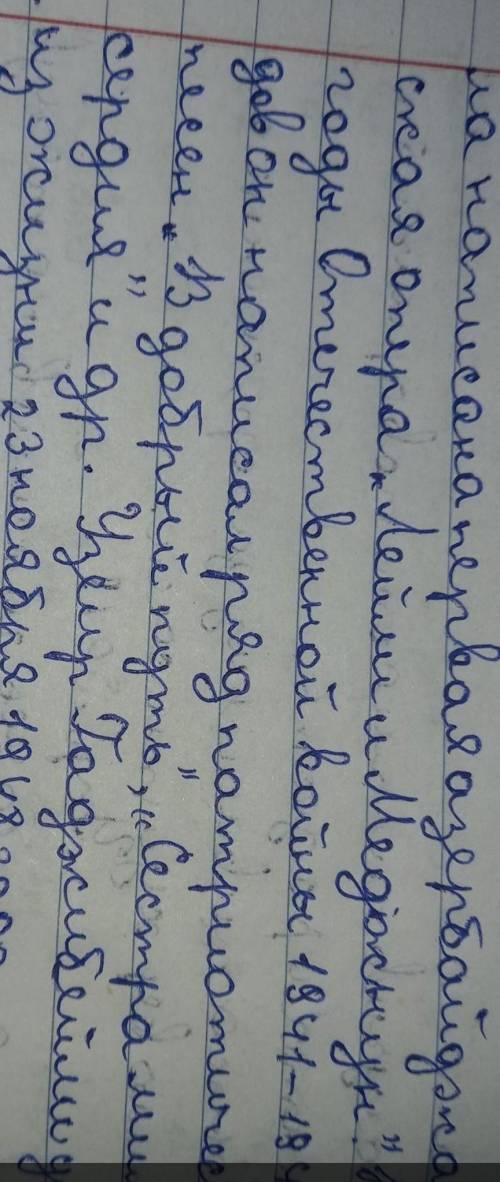 ла написана первая азербайджа
ская опера „Лейли и Меджнун"
годы Отечественной войны 1941-194
дов он написал ряд патриотичес
песен „В добрый путь", „Сестра ми
сердия" и др. Узеир Гаджибейли у
из жизни 23 ноября 1948